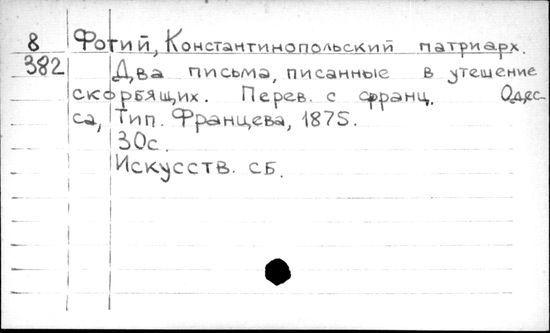 8 Фотий, Константинопольский патриарх.
382 Два письма, писанные в утешение
скорбящих. Перев. с франц. Одес-
са, Тип. Францева, 1875.
30с.
Искусств. сб.